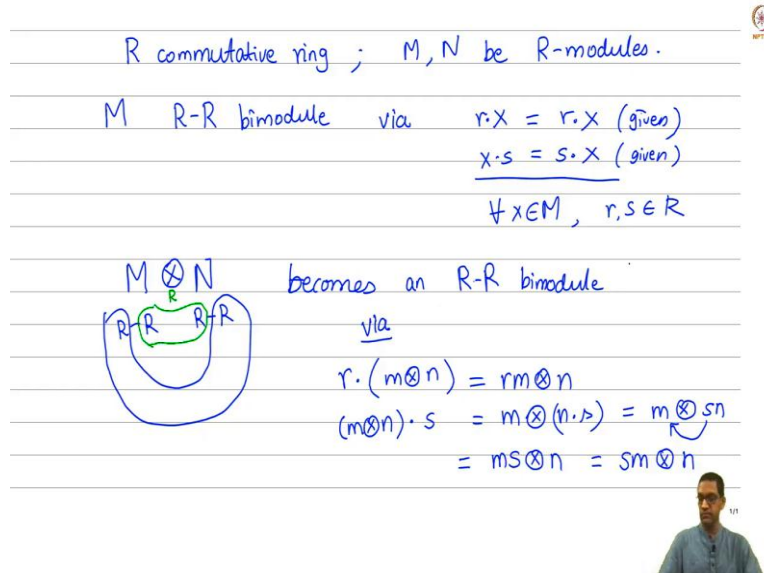 R commutative ring ; M, N be R-modules.
M R-R bimodule via r·x = r·x (given)
x·s = s·x (given)
∀ x∈M, r,s∈R
M ⊗ N becomes an R-R bimodule
R
R-R R-R via
r·(m⊗n) = rm⊗n
(m⊗n)·s = m⊗(n·s) = m⊗sn
= ms⊗n = sm⊗n
1/1
NPT